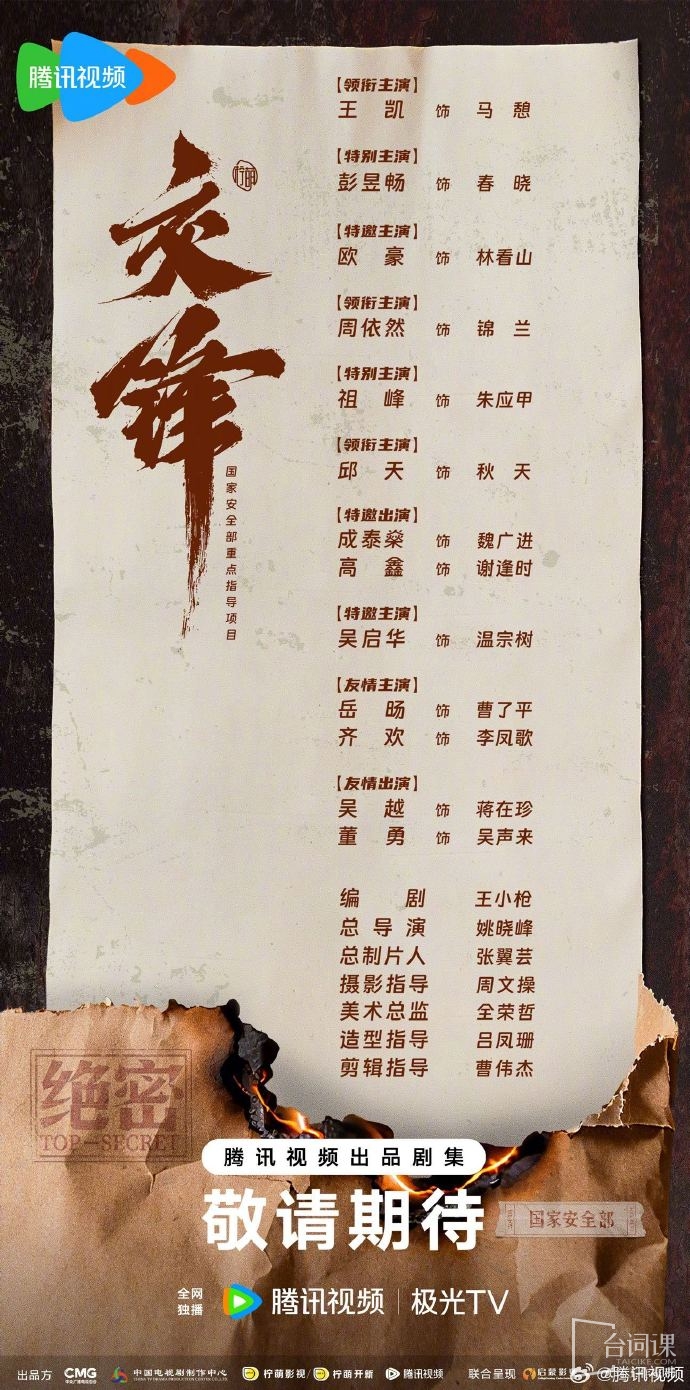 腾讯视频
交锋
柠萌
国家安全部重点指导项目
【领衔主演】
王凯 饰 马憩
【特别主演】
彭昱畅 饰 春晓
【特邀主演】
欧豪 饰 林看山
【领衔主演】
周依然 饰 锦兰
【特别主演】
祖峰 饰 朱应甲
【领衔主演】
邱天 饰 秋天
【特邀出演】
成泰燊 饰 魏广进
高鑫 饰 谢逢时
【特邀主演】
吴启华 饰 温宗树
【友情主演】
岳旸 饰 曹了平
齐欢 饰 李凤歌
【友情出演】
吴越 饰 蒋在珍
董勇 饰 吴声来
编剧 王小枪
总导演 姚晓峰
总制片人 张翼芸
摄影指导 周文操
美术总监 全荣哲
造型指导 吕凤珊
剪辑指导 曹伟杰
绝密
TOP-SECRET
腾讯视频出品剧集
敬请期待
国家安全部
全网独播 腾讯视频 极光TV
台词课
TAICIKE.COM
出品方 CMG 中央广播电视总台 中国电视剧制作中心 柠萌影视 柠萌开新 腾讯视频 联合呈现 启蒙影业
@腾讯视频